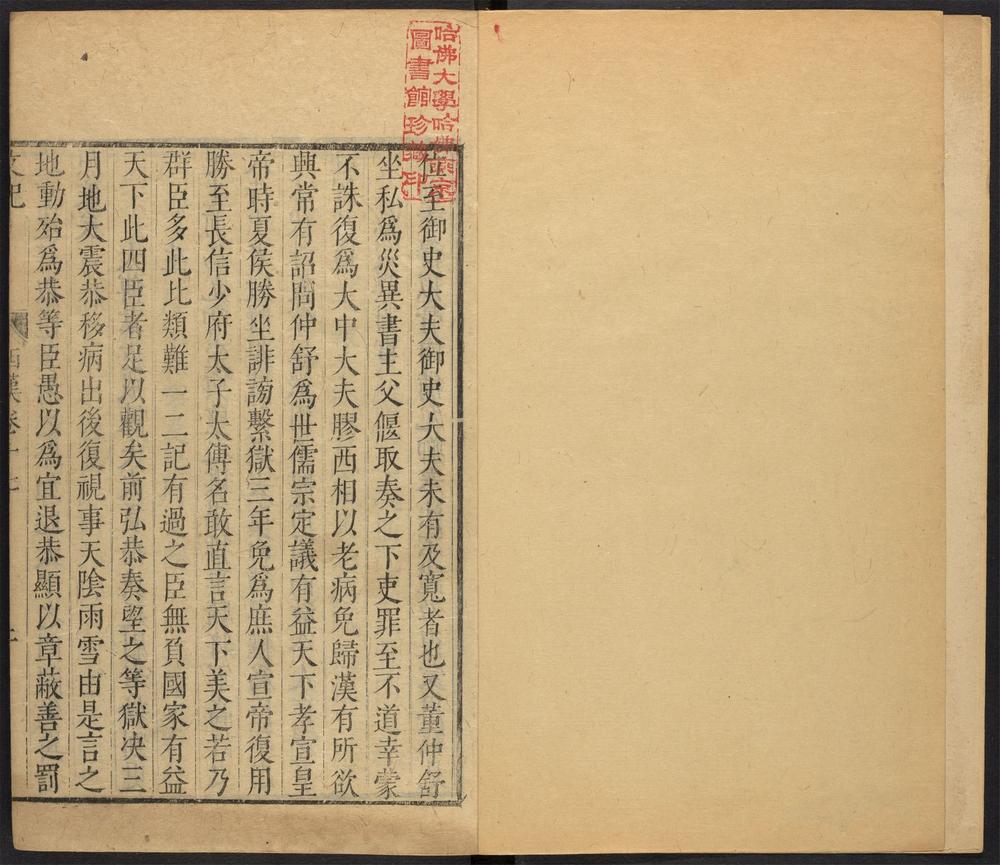 哈佛大學哈佛燕京
圖書館珍藏印
位至御史大夫御史大夫未有及寬者也又董仲舒
坐私爲災異書主父偃取奏之下吏罪至不道幸蒙
不誅復爲大中大夫膠西相以老病免歸漢有所欲
興常有詔問仲舒爲世儒宗定議有益天下孝宣皇
帝時夏侯勝坐誹謗繫獄三年免爲庶人宣帝復用
勝至長信少府太子太傅名敢直言天下美之若乃
群臣多此比類難一二記有過之臣無負國家有益
天下此四臣者足以觀矣前弘恭奏望之等獄决三
月地大震恭移病出後復視事天陰雨雪由是言之
地動殆爲恭等臣愚以爲宜退恭顯以章蔽善之罰
文紀
西漢卷十